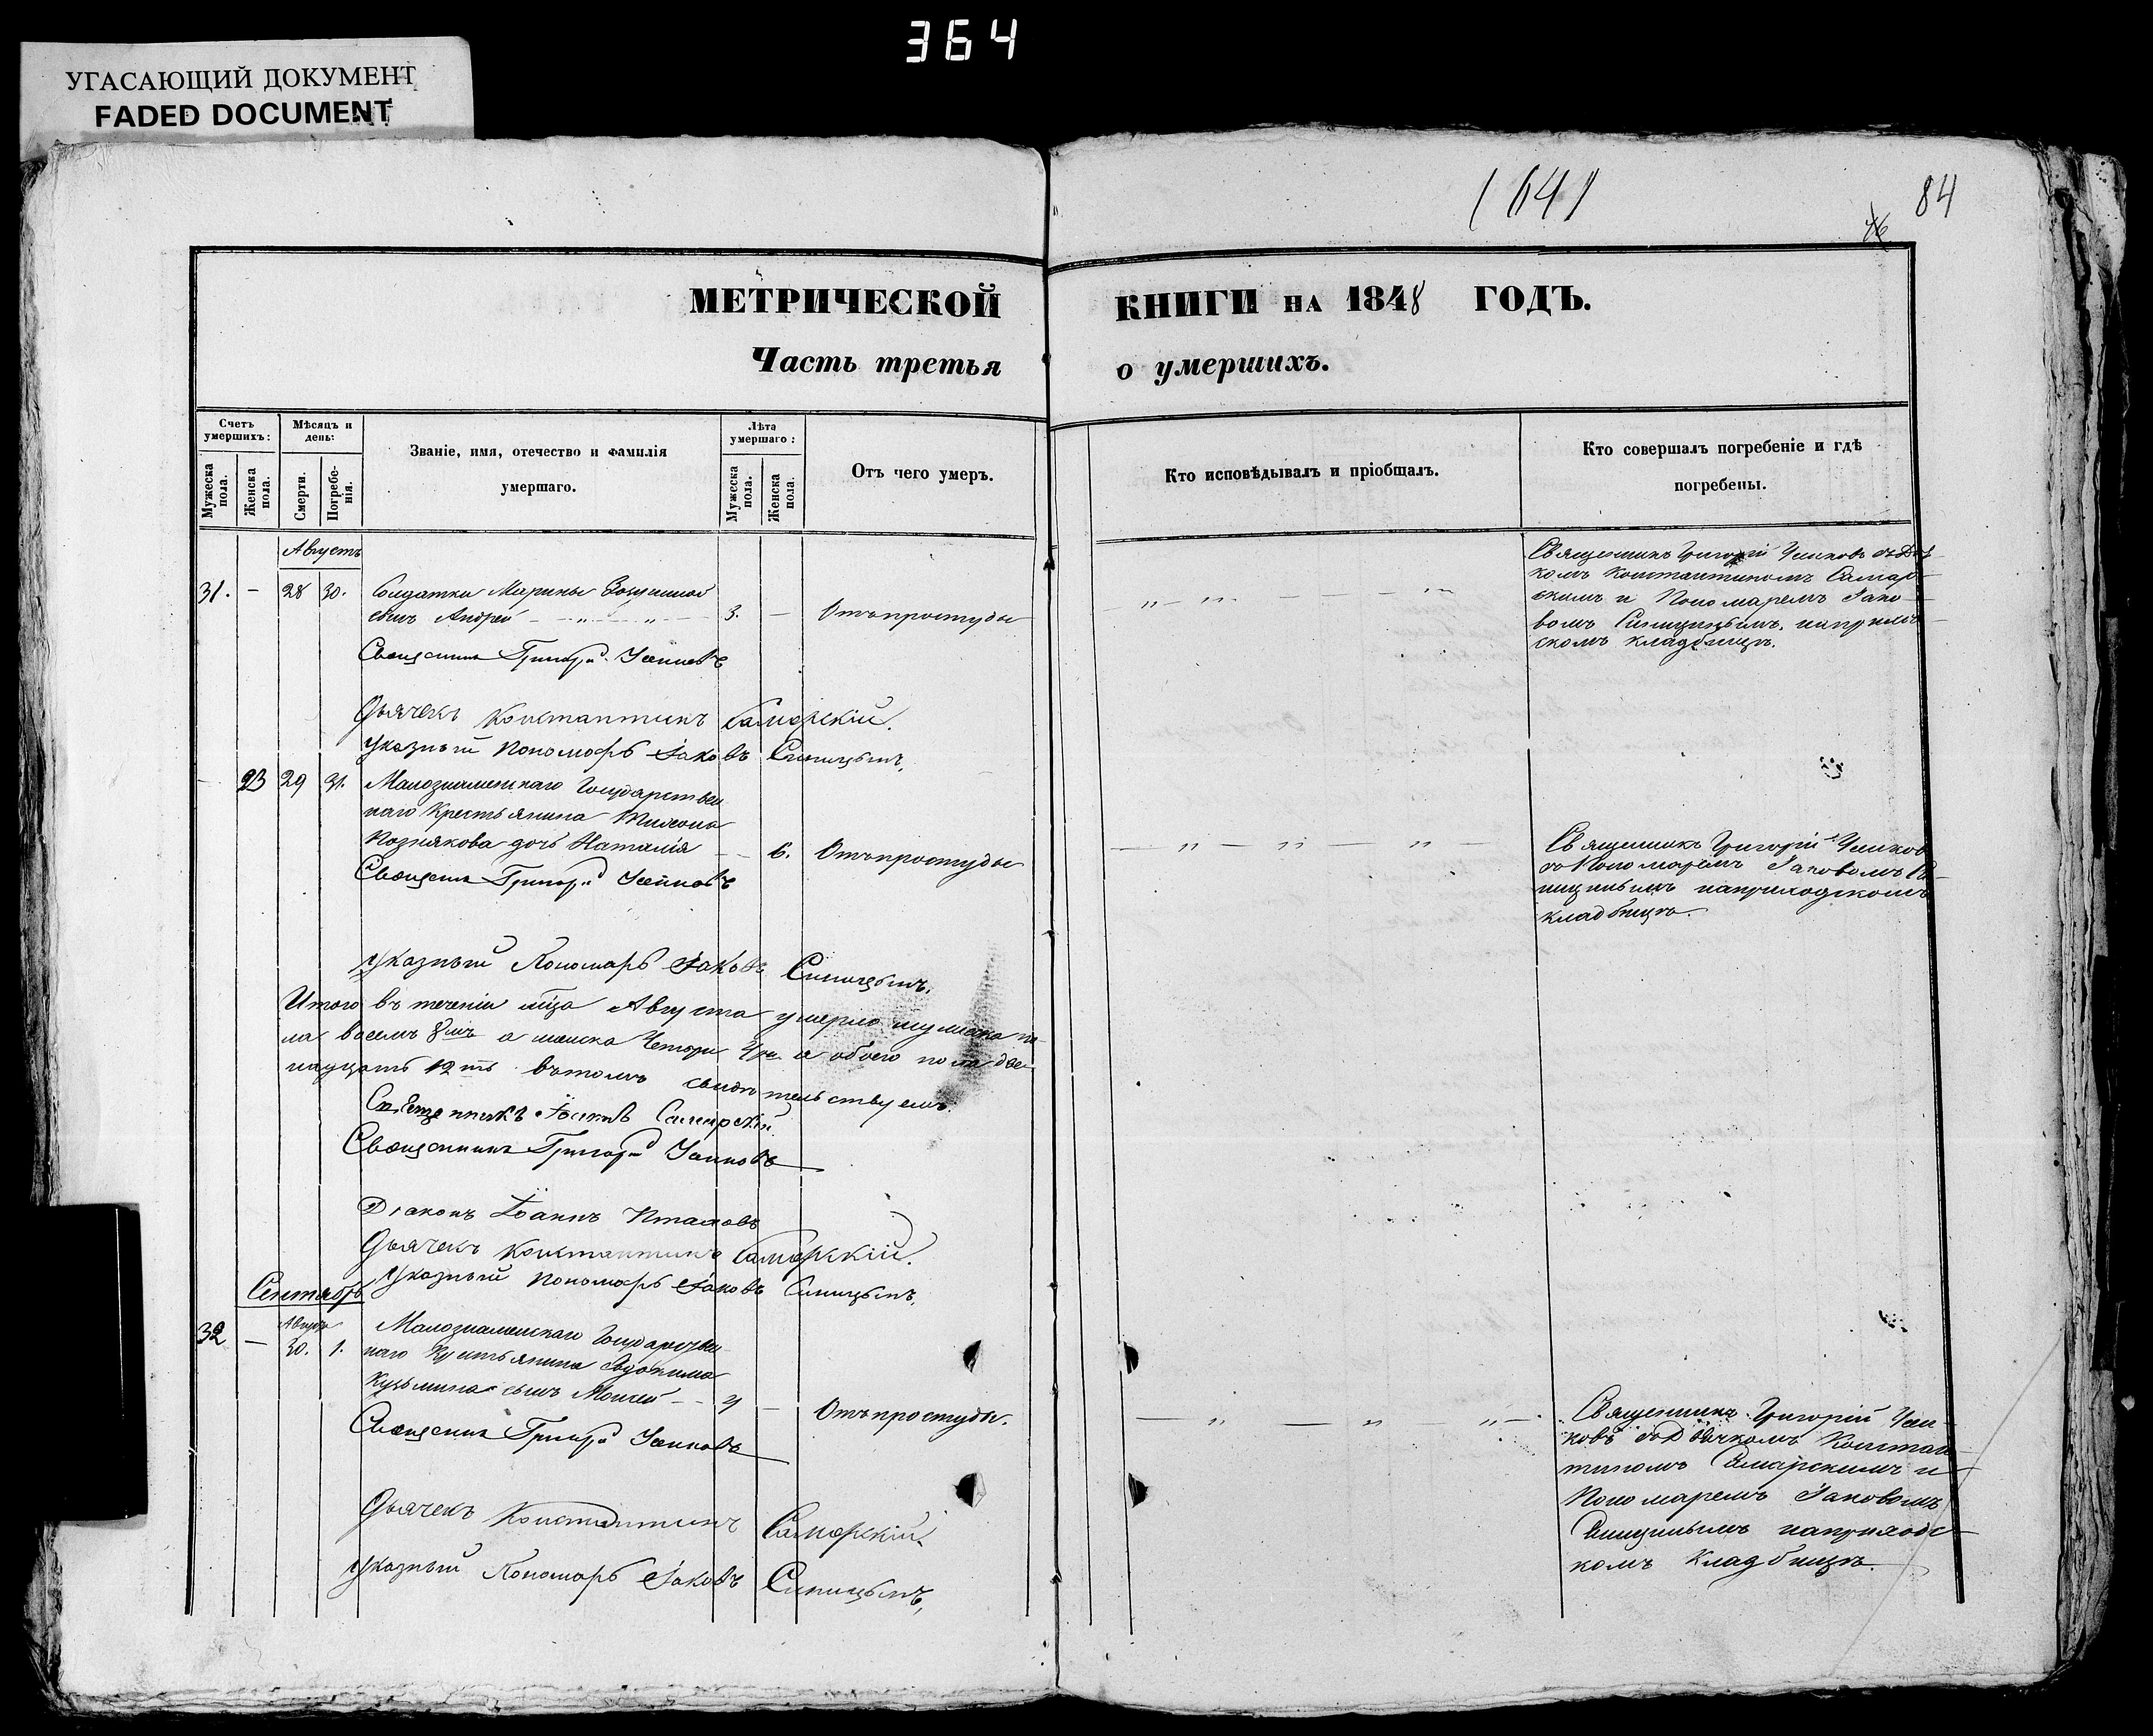 364
УГАСАЮЩИЙ ДОКУМЕНТ
FADED DOCUMENT
(641
84
МЕТРИЧЕСКОЙ КНИГИ НА 1848 ГОДЪ.
Часть третья о умершихъ.
Счетъ умершихъ:
Мужеска пола.
Женска пола.
Мѣсяцъ и день:
Смерти.
Погребенія.
Званіе, имя, отечество и фамилія
умершаго.
Лѣта умершаго:
Мужеска пола.
Женска пола.
Отъ чего умеръ.
Кто исповѣдывалъ и пріобщалъ.
Кто совершалъ погребеніе и гдѣ
погребены.
Августъ
31. — 28 30. Солдатки Марины
сынъ Андрей — „ — „ — 3. — Отъ простуды
Священникъ Григорій Усиновъ
Дьячекъ Константинъ Самарскій.
Указный Пономарь Іаковъ Синицынъ,
Священникъ Григорій съ Дьяч-
комъ Константиномъ Самар-
скимъ и Пономаремъ Іако-
вомъ Синицынымъ, на приход-
скомъ кладбищѣ.
— 23 29 31. Малознаменскаго Государствен-
наго Крестьянина Тихона
Познякова дочь Наталія — — 6. Отъ простуды
Священникъ Григорій
Указный Пономарь Іаковъ Синицынъ,
Священникъ Григорій
съ Пономаремъ Іаковомъ Си-
ницынымъ на приходскомъ
кладбищѣ.
Итого въ теченіи мѣсяца Августа умерло мужска по-
ла восемь 8мь а женска Четыре 4ре а обоего пола две-
надцать 12ть въ томъ свидѣтельствуемъ.
Священникъ Самарскій
Священникъ Григорій
Діаконъ Іоаннъ
Дьячекъ Константинъ Самарскій.
Указный Пономарь Іаковъ Синицынъ,
Сентябрь
Августа
32 — 30. 1. Малознаменскаго Государствен-
наго Крестьянина Евдокима
Кузьмина сынъ Моисей — — 4 — Отъ простуды.
Священникъ Григорій
Дьячекъ Константинъ Самарскій.
Указный Пономарь Іаковъ Синицынъ,
Священникъ Григорій
съ Дьячкомъ Констан-
тиномъ Самарскимъ и
Пономаремъ Іаковомъ
Синицынымъ на приходс-
комъ кладбищѣ.